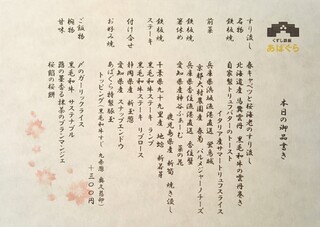 くずし鉄板
あばぐら
本日の御品書き
すり流し　春キャベツと桜海老のすり流し
名物　北海道産 黒毛和牛の雲丹巻き
鉄板焼　自家製トリュフバターのトースト
イタリア産サマートリュフスライス
前菜　兵庫県浜坂漁港直送 蛍烏賊
京都 大村農園産 春菊 パルメジャーノチーズ
鉄板焼　兵庫県香住漁港直送 香住蟹
箸休め　愛知県産 神谷ふぁーむ 菜の花
鹿児島県産 新筍 焼き浸し
鉄板焼　千葉県九十九里産 地蛤 新若芽
ステーキ　黒毛和牛ステーキ ランプ
黒毛和牛ステーキ リブロース
付け合せ　静岡県産 新玉葱
愛知県産 スナップエンドウ
お好み焼　あばぐら特製豚玉
トッピング(黒毛和牛すじ 九条葱)
+三〇〇円
ご飯物　〆のガーリックライス
椀物　黒毛和牛
甘味　蕗の薹香る抹茶のブランマンジェ
桜餡の桜餅